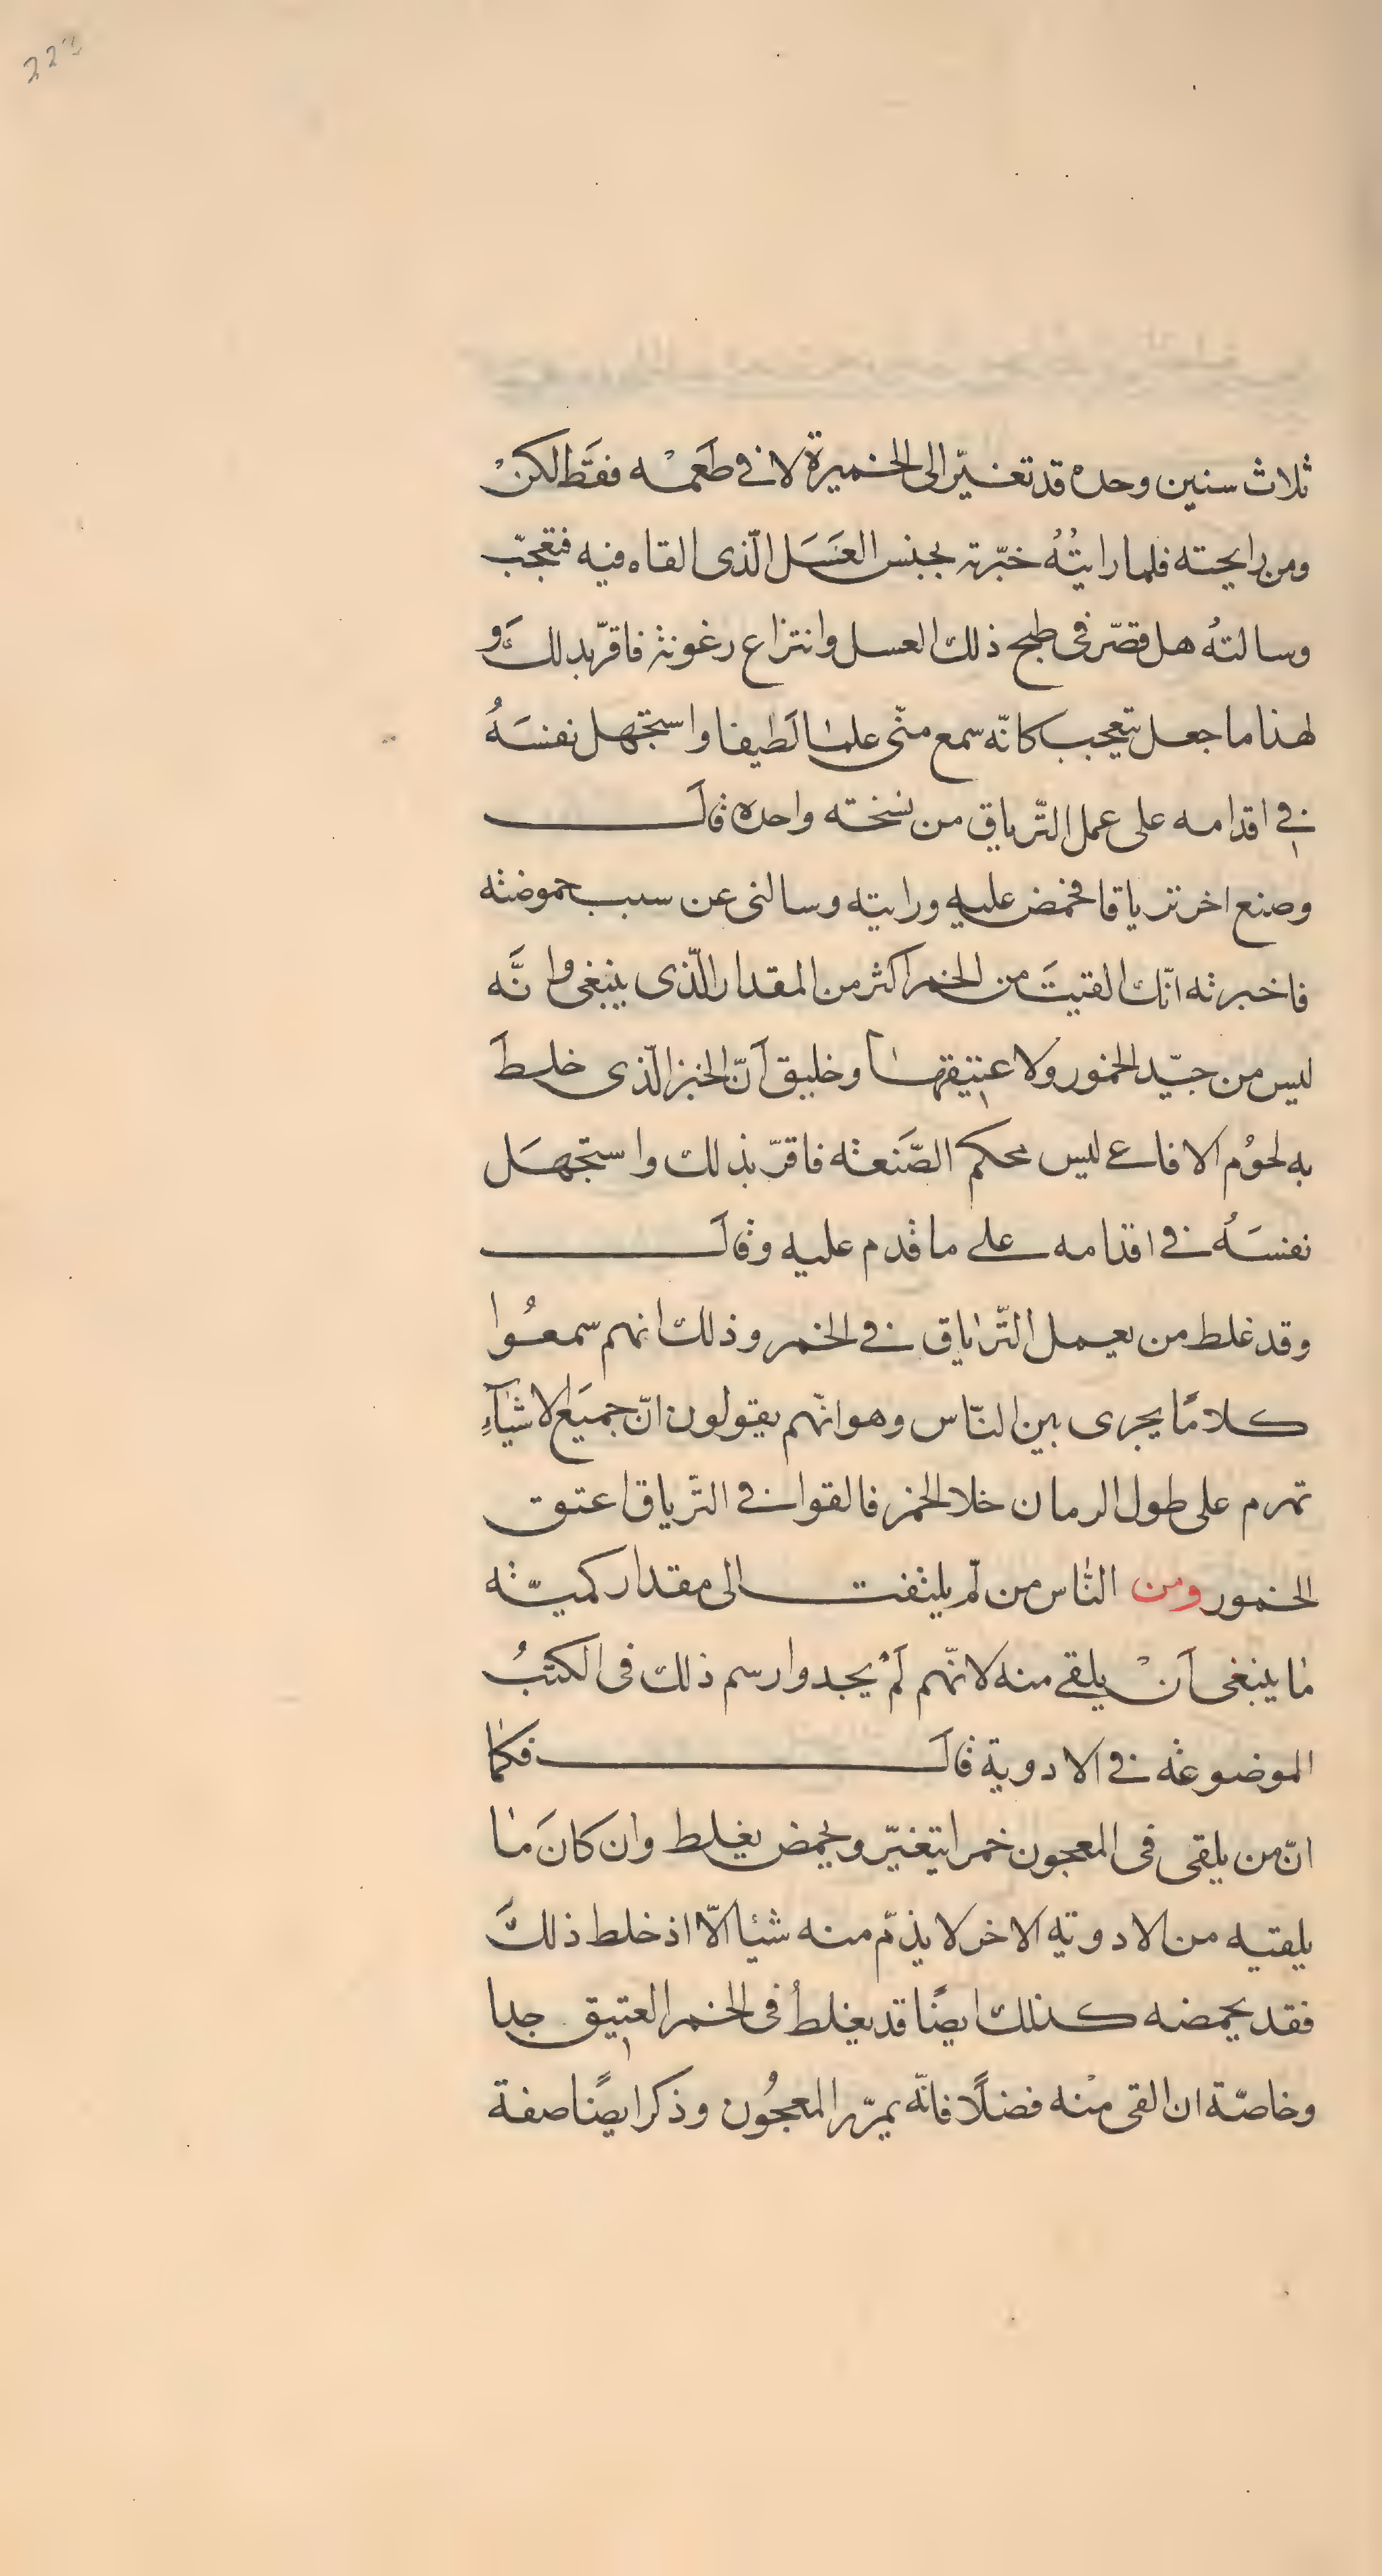 223
ثلاث سنين وحده قد تغيّر الى الخميرة لا في طَعمْه فقَط لكنْ
ومن رايحته فلما رايتُهُ خبّرته بجنس العَسَل الّذى القاه فيه فتعجّب
وسالتهُ هل قصّر فى طبخ ذلك العسل وانتزاع رغوته فاقرّ بذلك وَ
لهذا ما جعل يتعجب كانّه سمع منّى علمًا لَطيفا واستجهل نفسَهُ
في اقدامه على عمل التّرياق من نسخته واحده قالَ
وصنع اخر ترياقا فحمض عليه ورايته وسالنى عن سبب حموضته
فاخبرته انّك القيتَ من الخمر اكثر من المقدار الّذى ينبغى وانَّه
ليس من جيّد الخمور ولا عتيقها وخليق اَنّ الخبز الّذى خلطَ
به لحوُم الافاعى ليس محكم الصَّنعته فاقرّ بذلك واستجهَل
نفسَهُ في اقدامه على ما قدم عليه وقالَ
وقد غلط من يعمل التّرياق في الخمر وذلك انهم سمعُوا
كلامًا يجرى بين النّاس وهو انّهم يقولون انّ جميَع الاشيَآءِ
تهرم على طول الزمان خلا الخمر فالقوا في التّرياق اعتق
الخمور ومن النّاس من لَم يلتفت الى مقدار كميّته
ما ينبغى اَنْ يلقى منه لانّهم لَمْ يجدوا رسم ذلك فى الكتبُ
الموضوعته في الادوية قالَ فكما
انّ من يلقى فى المعجون خمرا يتغيّر ويحمض يغلط وان كانَ ما
يلقيه من الادوته الاخر لا يذمّ منه شيئا الّا اذ خلط ذلكَ
فقد يحمضه كذلك ايضًا قد يغلطُ فى الخمر العتيق جدا
وخاصّة ان القى منْه فضلًا فانّه يمرّر المعجُون وذكر ايضًا صفة